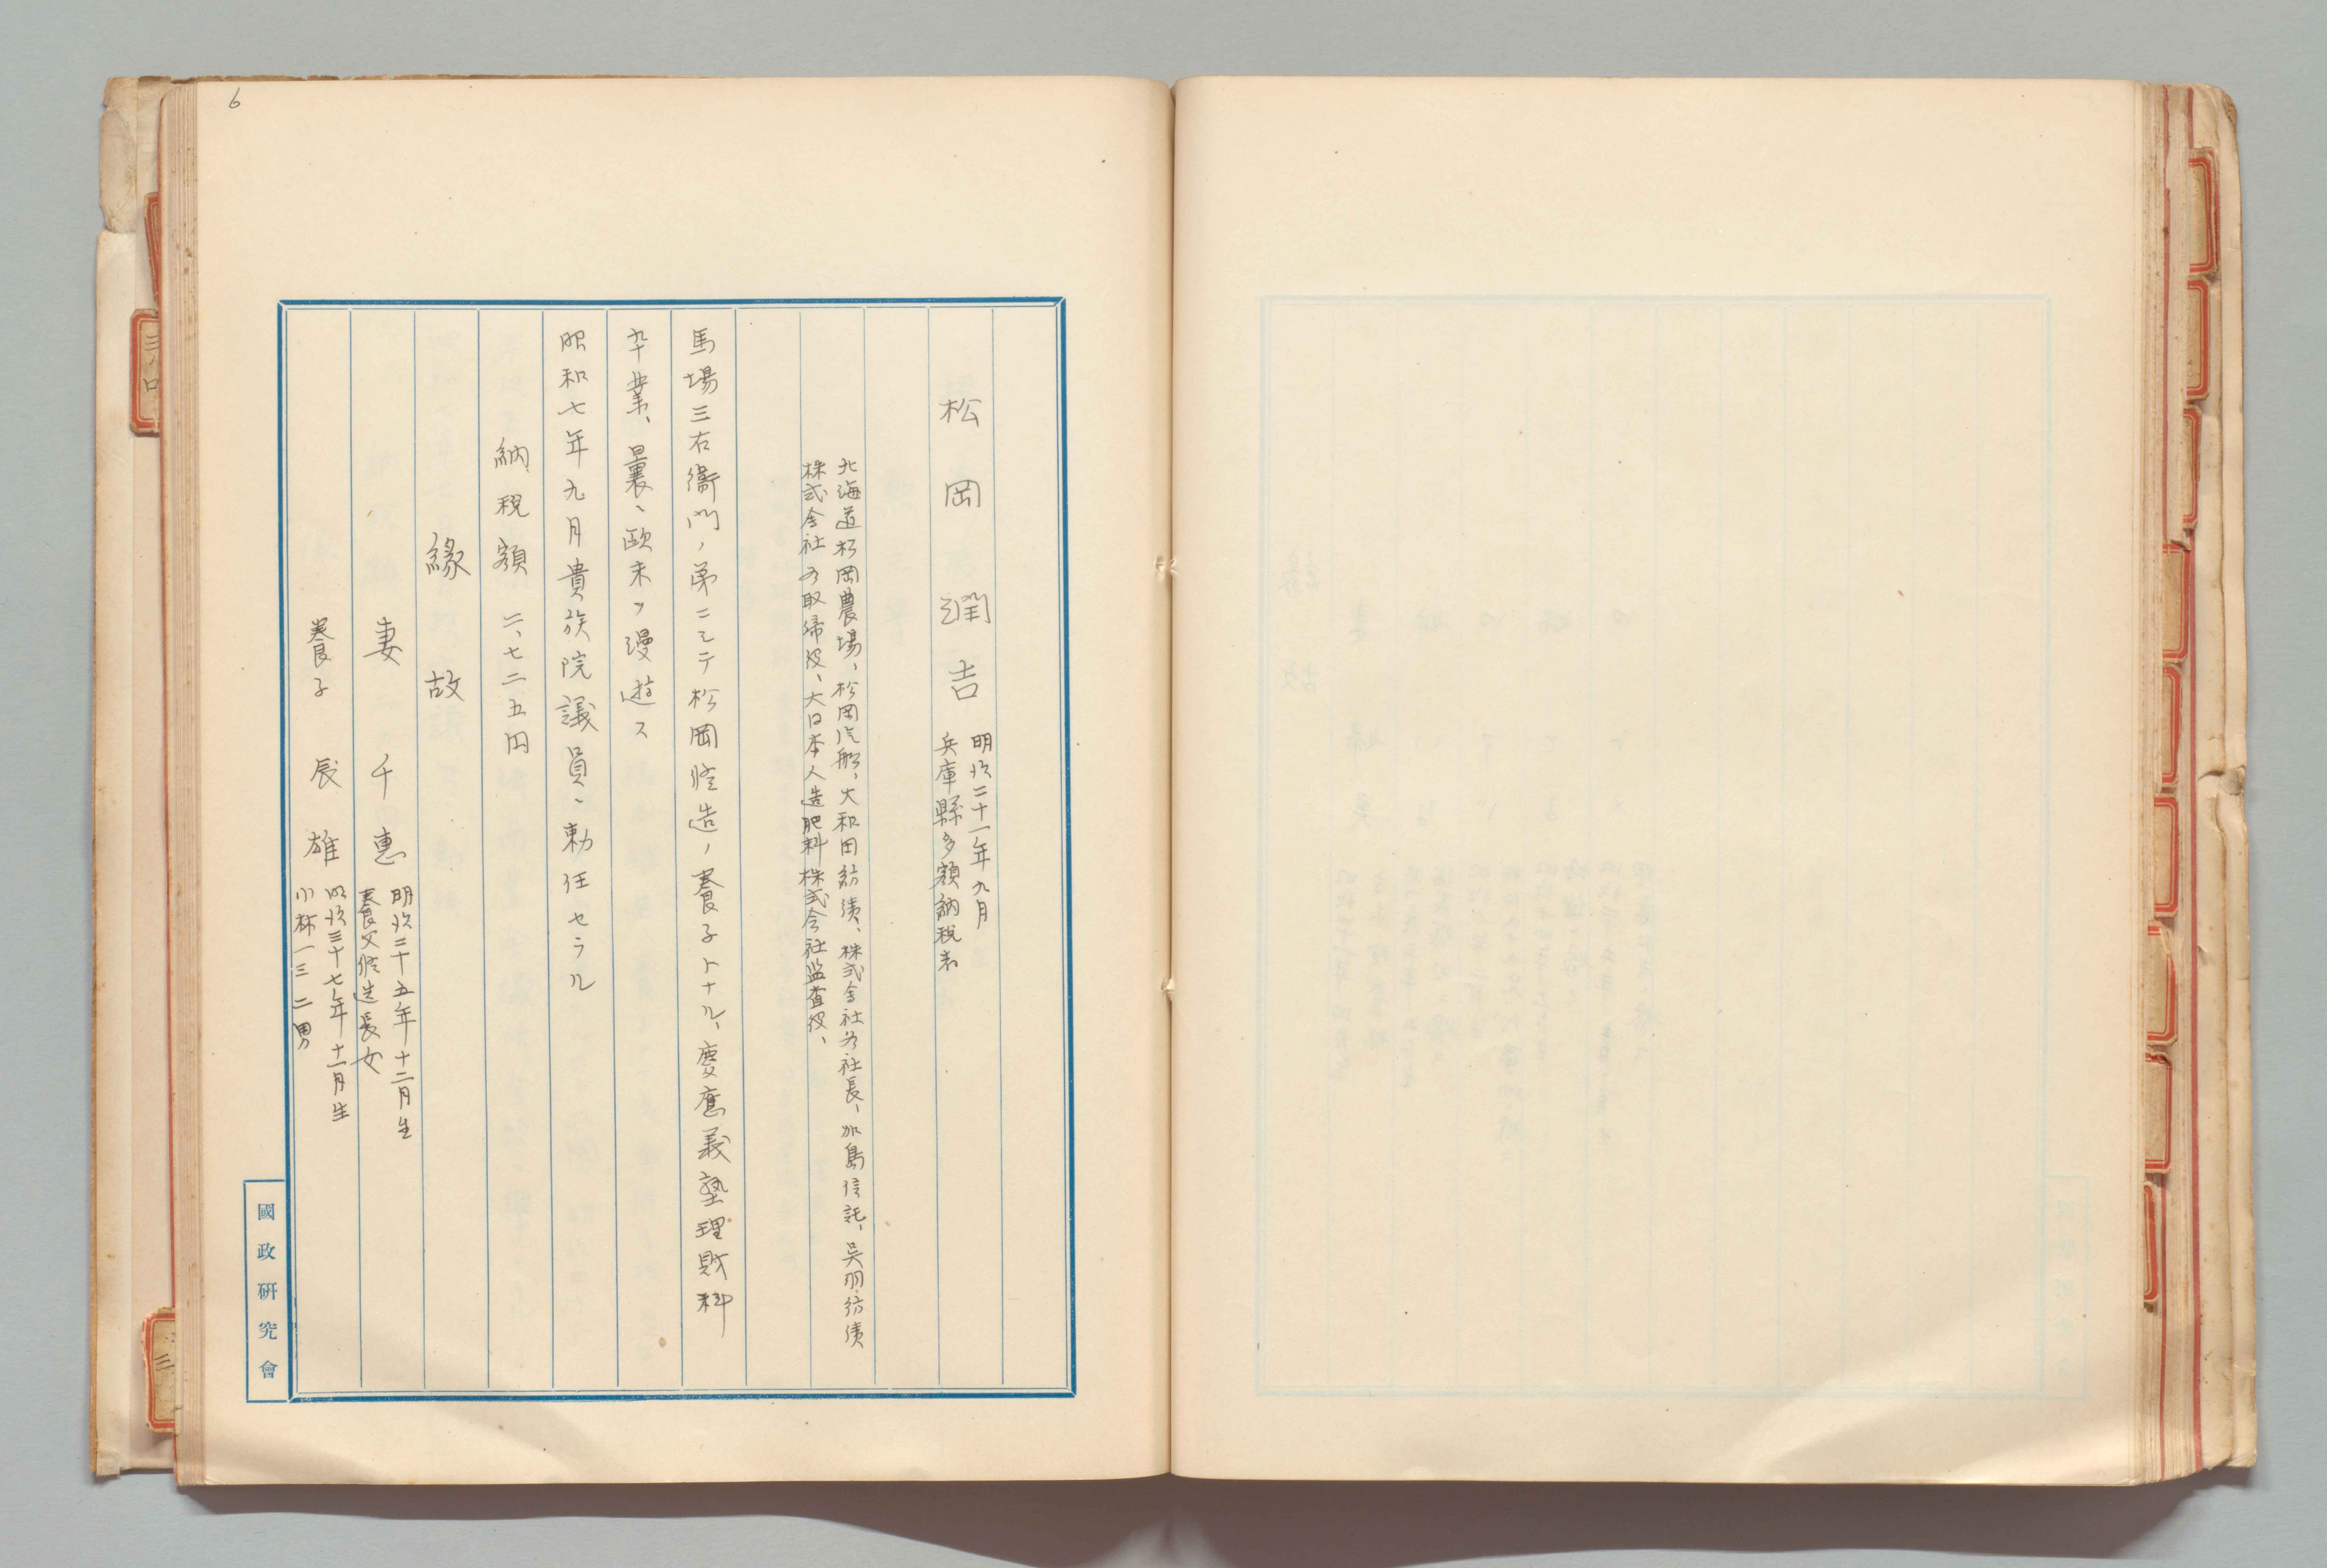 6
松岡潤吉
明治二十一年九月
兵庫縣多額納税者
北海道松岡農場、松岡汽船、大和田紡績、株式会社各社長、加島信託、呉羽紡績
株式会社各取締役、大日本人造肥料株式会社監査役、
馬場三右衛門ノ弟ニシテ松岡修造ノ養子トナル、慶應義塾理財科
卒業、曩ニ欧米ヲ漫遊ス
昭和七年九月貴族院議員ニ勅任セラル
納税額 二、七二五円
緣故
妻 千惠
明治二十五年十二月生
養父修造長女
養子 辰雄
明治三十七年十一月生
小林一三 二男
國政研究會